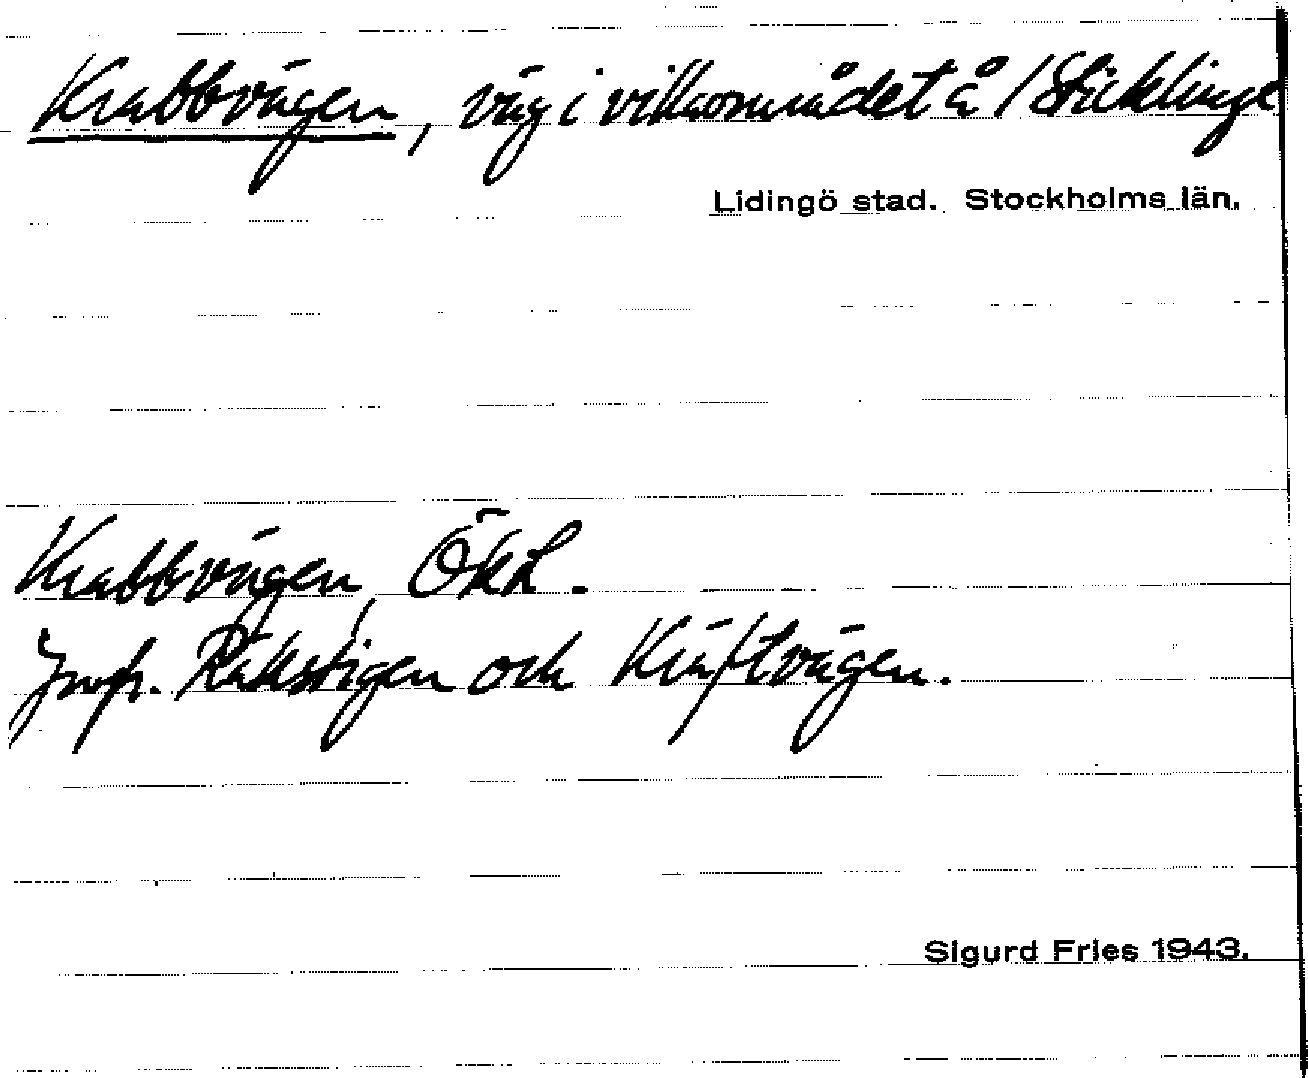 Krabbvägen, väg i villaområdet å /Sticklinge
Lidingö stad. Stockholms län.
Krabbvägen, ÖkL.
Jmfr. Räkstigen och Kräftvägen.
Sigurd Fries 1943.